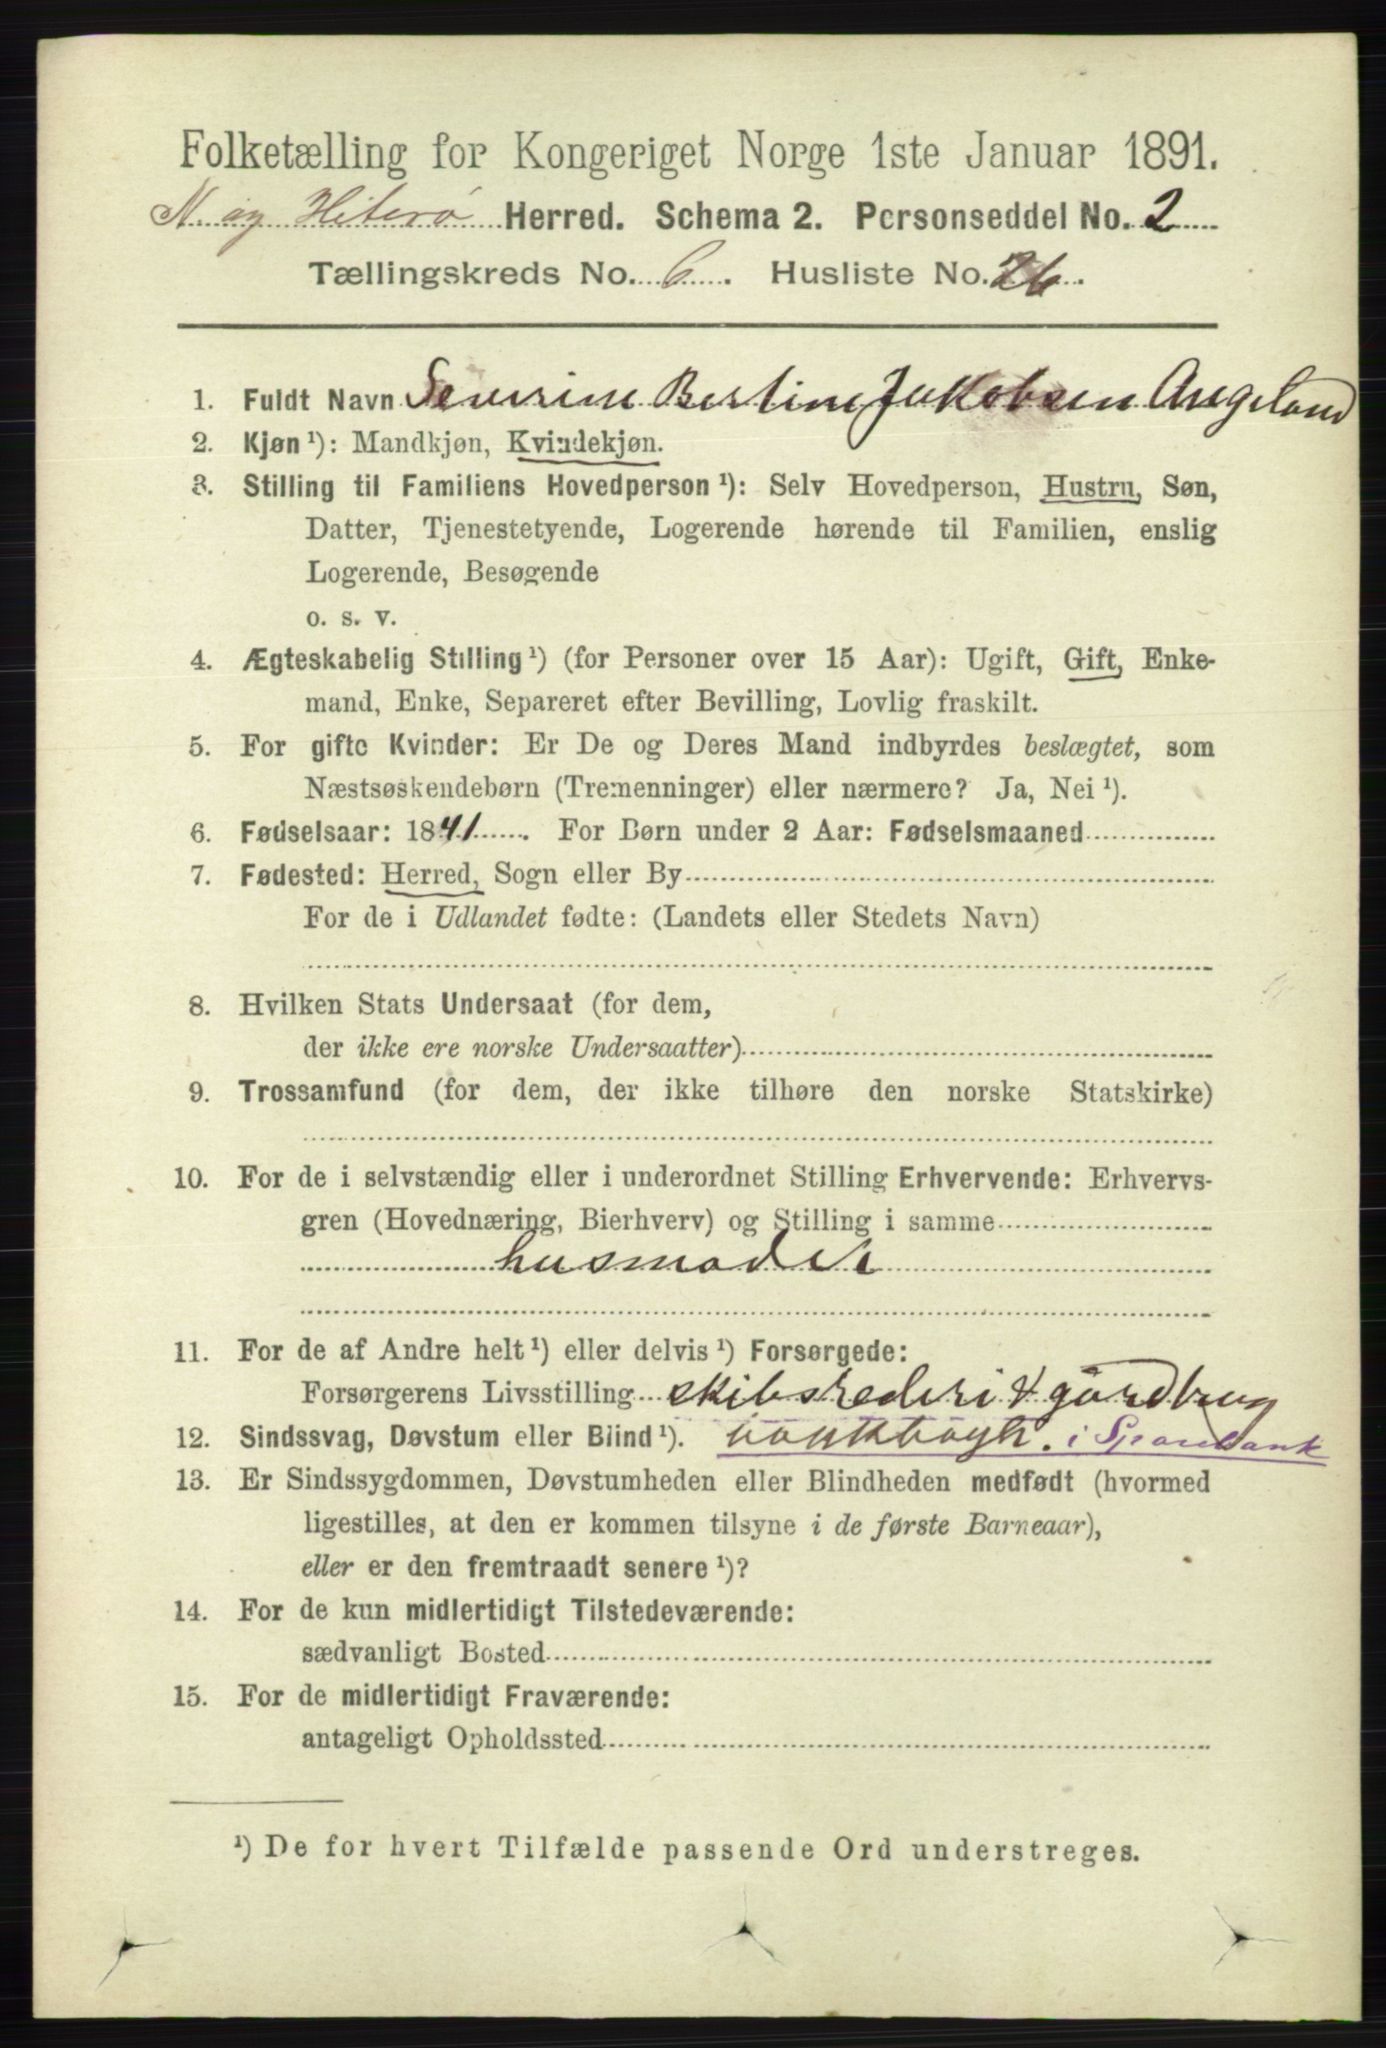 Folketælling for Kongeriget Norge 1ste Januar 1891.
N. og Hiterø Herred. Schema 2. Personseddel No. 2
Tællingskreds No. 6. Husliste No. 26.
1. Fuldt Navn Severine Bertine Jakobsen Augeland
2. Kjøn ¹): Mandkjøn, Kvindekjøn.
3. Stilling til Familiens Hovedperson ¹): Selv Hovedperson, Hustru, Søn,
Datter, Tjenestetyende, Logerende hørende til Familien, enslig
Logerende, Besøgende
o. s. v.
4. Ægteskabelig Stilling ¹) (for Personer over 15 Aar): Ugift, Gift, Enke-
mand, Enke, Separeret efter Bevilling, Lovlig fraskilt.
5. For gifte Kvinder: Er De og Deres Mand indbyrdes beslægtet, som
Næstsøskendebørn (Tremenninger) eller nærmere? Ja, Nei ¹).
6. Fødselsaar: 1841. For Børn under 2 Aar: Fødselsmaaned
7. Fødested: Herred, Sogn eller By
For de i Udlandet fødte: (Landets eller Stedets Navn)
8. Hvilken Stats Undersaat (for dem,
der ikke ere norske Undersaatter)
9. Trossamfund (for dem, der ikke tilhøre den norske Statskirke)
10. For de i selvstændig eller i underordnet Stilling Erhvervende: Erhvervs-
gren (Hovednæring, Bierhverv) og Stilling i samme
husmoder
11. For de af Andre helt ¹) eller delvis ¹) Forsørgede:
Forsørgerens Livsstilling skibsrederi & gårdbrug
12. Sindssvag, Døvstum eller Blind ¹). i Sparebank
13. Er Sindssygdommen, Døvstumheden eller Blindheden medfødt (hvormed
ligestilles, at den er kommen tilsyne i de første Barneaar),
eller er den fremtraadt senere ¹)?
14. For de kun midlertidigt Tilstedeværende:
sædvanligt Bosted
15. For de midlertidigt Fraværende:
antageligt Opholdssted
¹) De for hvert Tilfælde passende Ord understreges.